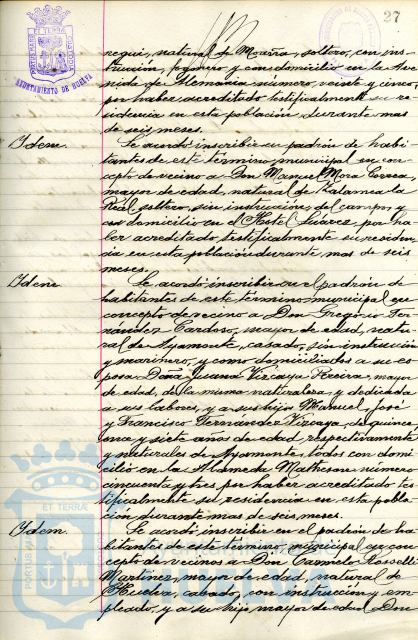 27
AYUNTAMIENTO DE HUELVA
negui, natural de Moaña, soltero, con ins-
trucción, fogonero y con domicilio en la Ave-
nida de Alemania número, veinte y cinco,
por haber acreditado testificalmente su re-
sidencia en esta población durante mas
de seis meses.
Idem. Se acordó inscribir en padrón de habi-
tantes de este término municipal en con-
cepto de vecino a Don Manuel Mora Correa,
mayor de edad, natural de Zalamea la
Real, soltero, sin instrucción, del campo, y
con domicilio en el Hostel Suárez por ha-
ber acreditado testificalmente su residen-
cia en esta población durante mas de seis
meses.
Idem. Se acordó inscribir en el padrón de
habitantes de este término municipal en
concepto de vecino a Don Gregorio Fer-
nández Cardoso, mayor de edad, natu-
ral de Ayamonte, casado, sin instrucción
y marinero, y como domiciliados a su es-
posa Doña Juana Vizcaya Pereira, mayor
de edad, de la misma naturaleza, y dedicada
a sus labores, y a sus hijos Manuel, José
y Francisco Fernandez Vizcaya, de quince,
once y siete años de edad, respectivamente
y naturales de Ayamonte, todos con domi-
cilio en la Alameda Matheson número
cincuenta y tres por haber acreditado tes-
tificalmente su residencia en esta pobla-
ción durante mas de seis meses.
Idem. Se acordó inscribir en el padrón de ha-
bitantes de este término municipal en con-
cepto de vecinos a Don Carmelo Rosselli
Martinez, mayor de edad, natural de
Huelva, casado, con instrucción y em-
pleado, y a su hijo, mayor de edad Don